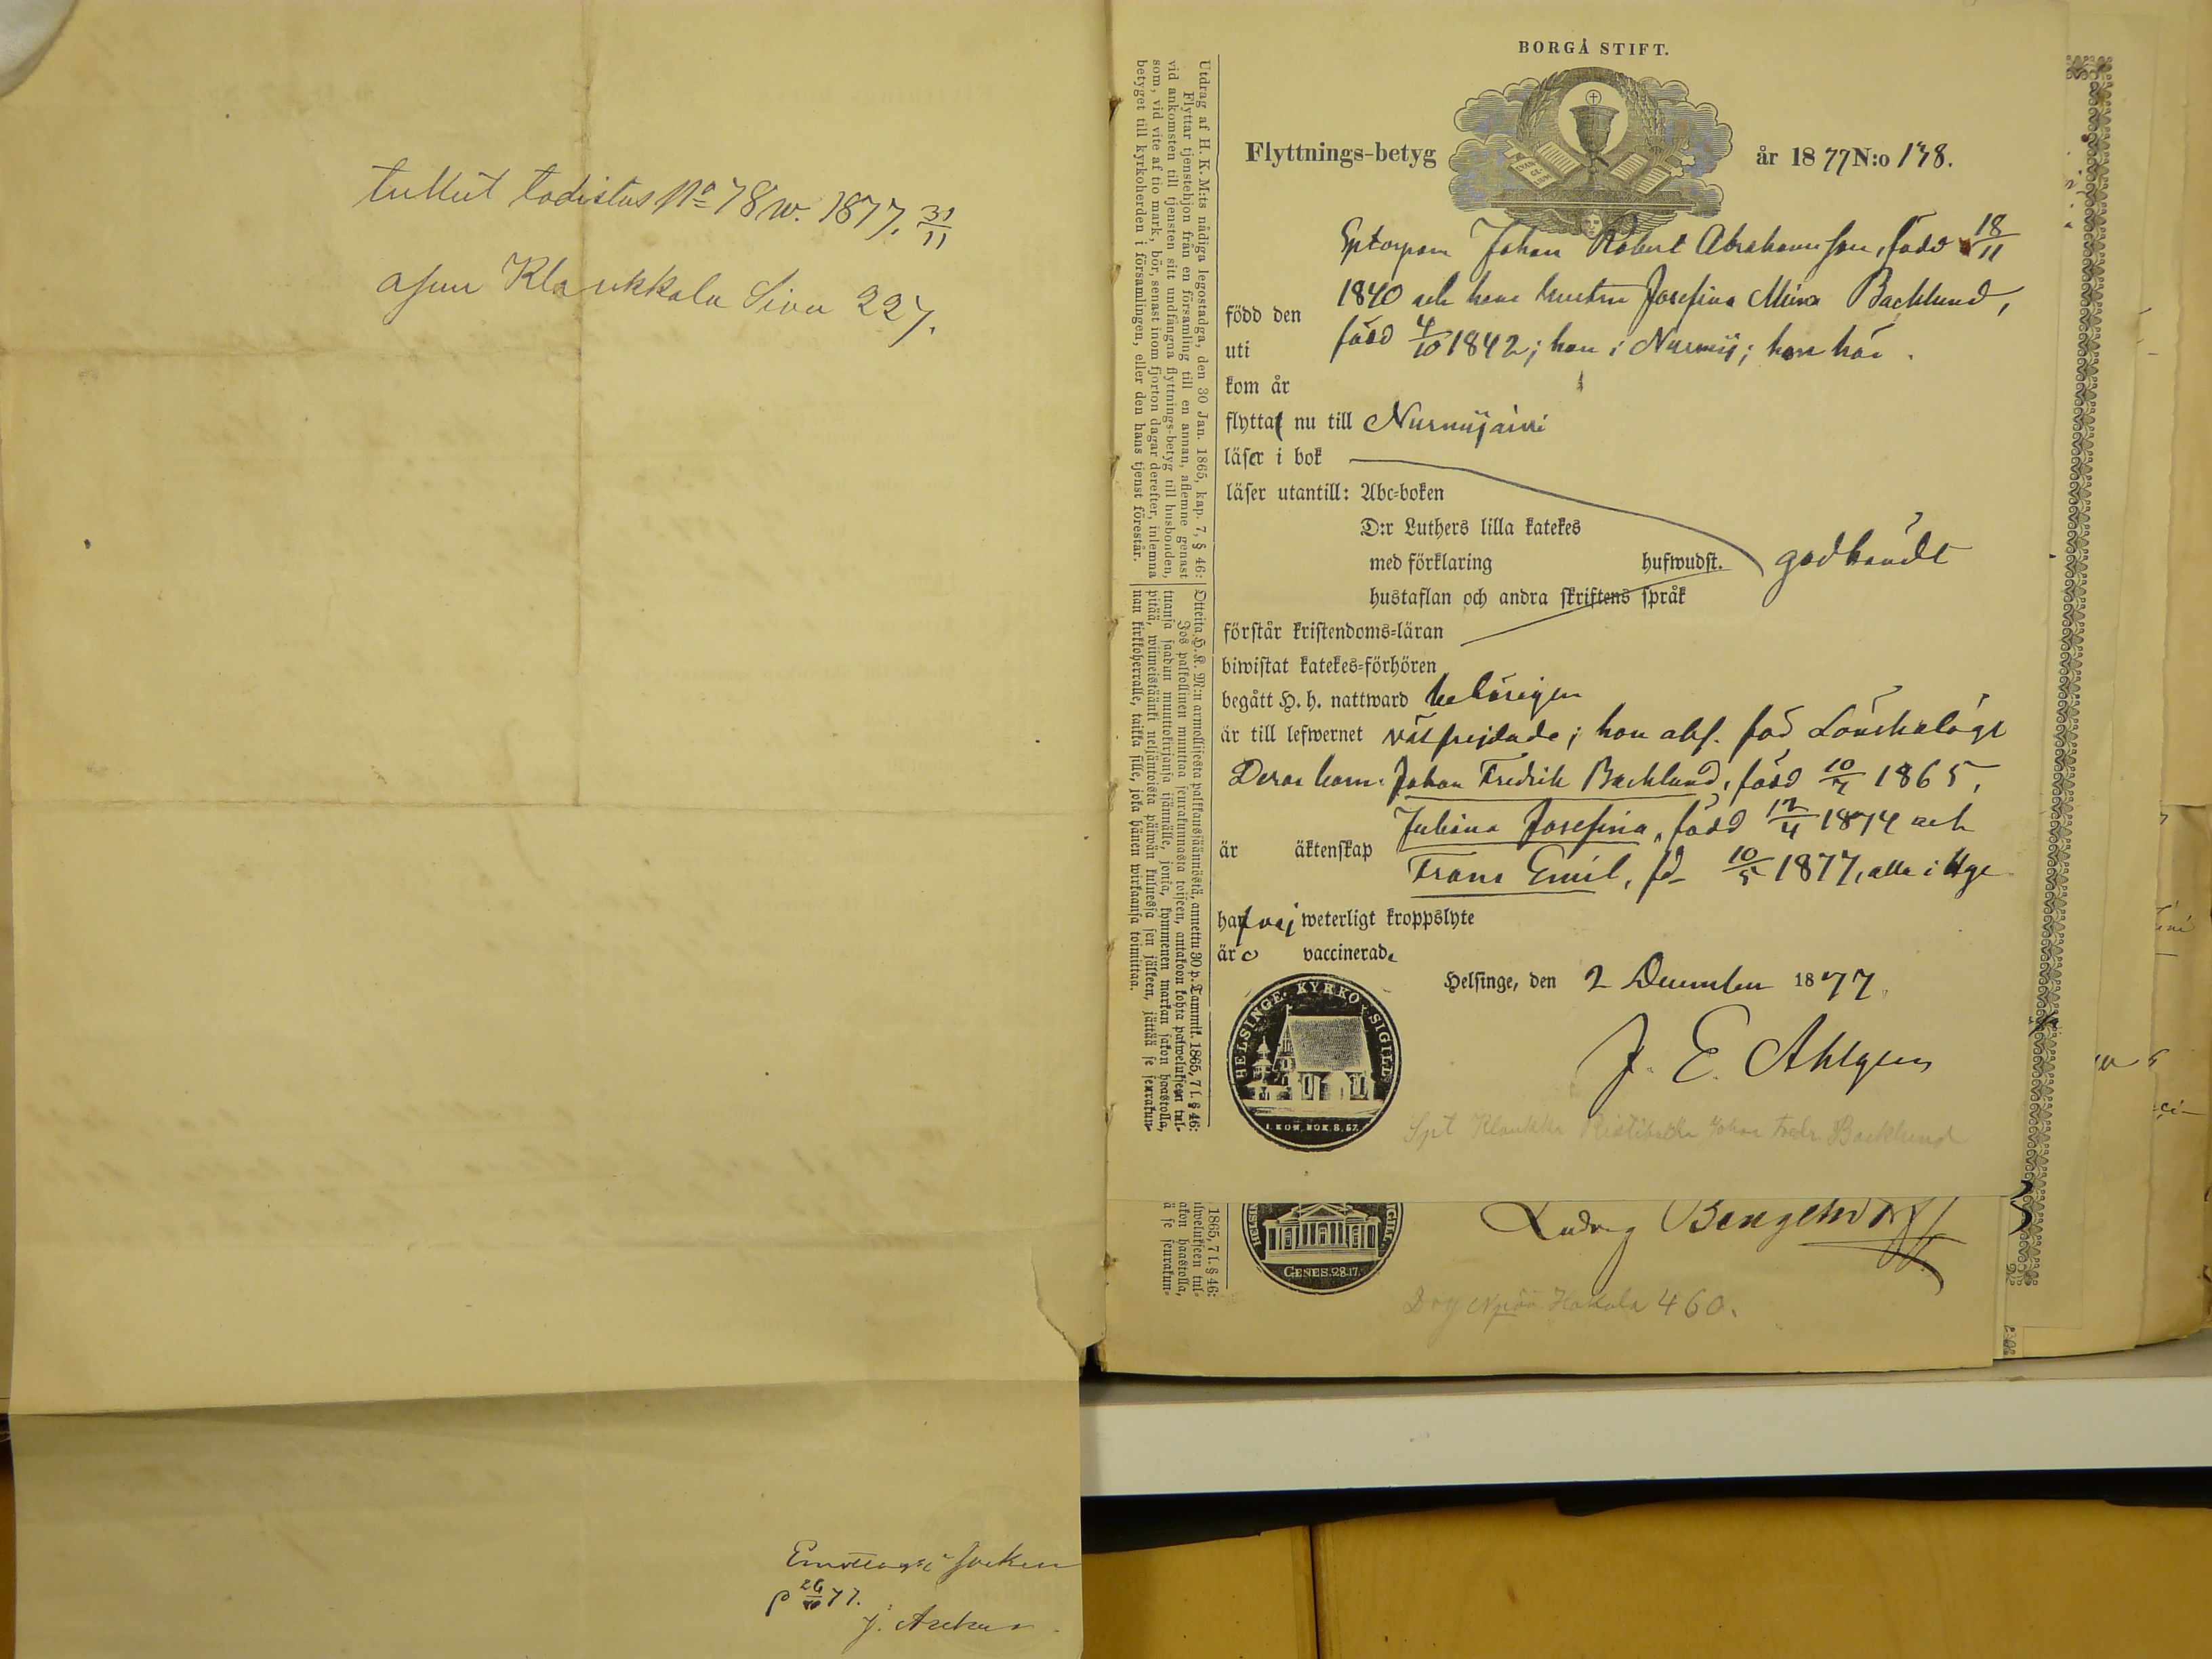 tullut todistus No 78 w. 1877. 31/11
asuu Klaukkala Sivu 227.
socken
26/10 77.
J.
BORGÅ STIFT.
Flyttnings-betyg år 1877 N:o 138.
Johan Robert Abrahamsson, född 18/11
1840 och hans hustru Josefina Mina Backlund,
född den
född 4/10 1842; han i Nurmij; hon här.
uti
kom år
flytta nu till Nurmijärvi
läser i bok
läser utantill: Abc-boken
D:r Luthers lilla katekes
med förklaring hufwudst. godkändt
hustaflan och andra skriftens språk
förstår kristendoms-läran
biwistat katekes-förhören
begått H. h. nattward behörigen
är till lefwernet välfrejdade; hon abs. för Lönskaläge
Deras barn: Johan Fredrik Backlund, född 10/7 1865,
Juliana Josefina, född 12/4 1874 och
är äktenskap
Frans Emil, fd 10/5 1877, alla i Hge
hafva ej weterligt kroppslyte
äro vaccinerade
Helsinge, den 2 December 1877.
J. E. Ahlgren
HELSINGE KYRKO SIGILL
1. KON. BOK. 8. 57.
Spt Klaukka Ristibacka Johan Fredr Backlund
Utdrag af H. K. M:ts nådiga legostadga, den 30 Jan. 1865, kap. 7, § 46:
Flyttar tjenstehjon från en församling till en annan, aflemne genast
vid ankomsten till tjensten sitt undfångna flyttnings-betyg till husbonden,
som, vid vite af tio mark, bör, senast inom fjorton dagar derefter, inlemna
betyget till kyrkoherden i församlingen, eller den hans tjenst förestår.
Otteita H. K. M:n armollisesta palkkaussäännöstä, annettu 30 p. Tammik. 1865, 7 l. § 46:
Jos palkollinen muuttaa seurakunnasta toiseen, antakoon kohta palwelukseen tul-
tuansa saadun muuttokirjansa isännälle, jonka, kymmenen markan sakon haastolla,
pitää, wiimeistäänki neljäntoista päiwän kuluessa sen jälkeen, jättää se seurakun-
nan kirkkoherralle, taikka sille, joka hänen wirkaansa toimittaa.
1865, 7 l. § 46:
lwelukseen tul-
akon haastolla,
ä se seurakun-
GENES. 28.17.
Ludvig
Hakala 460.